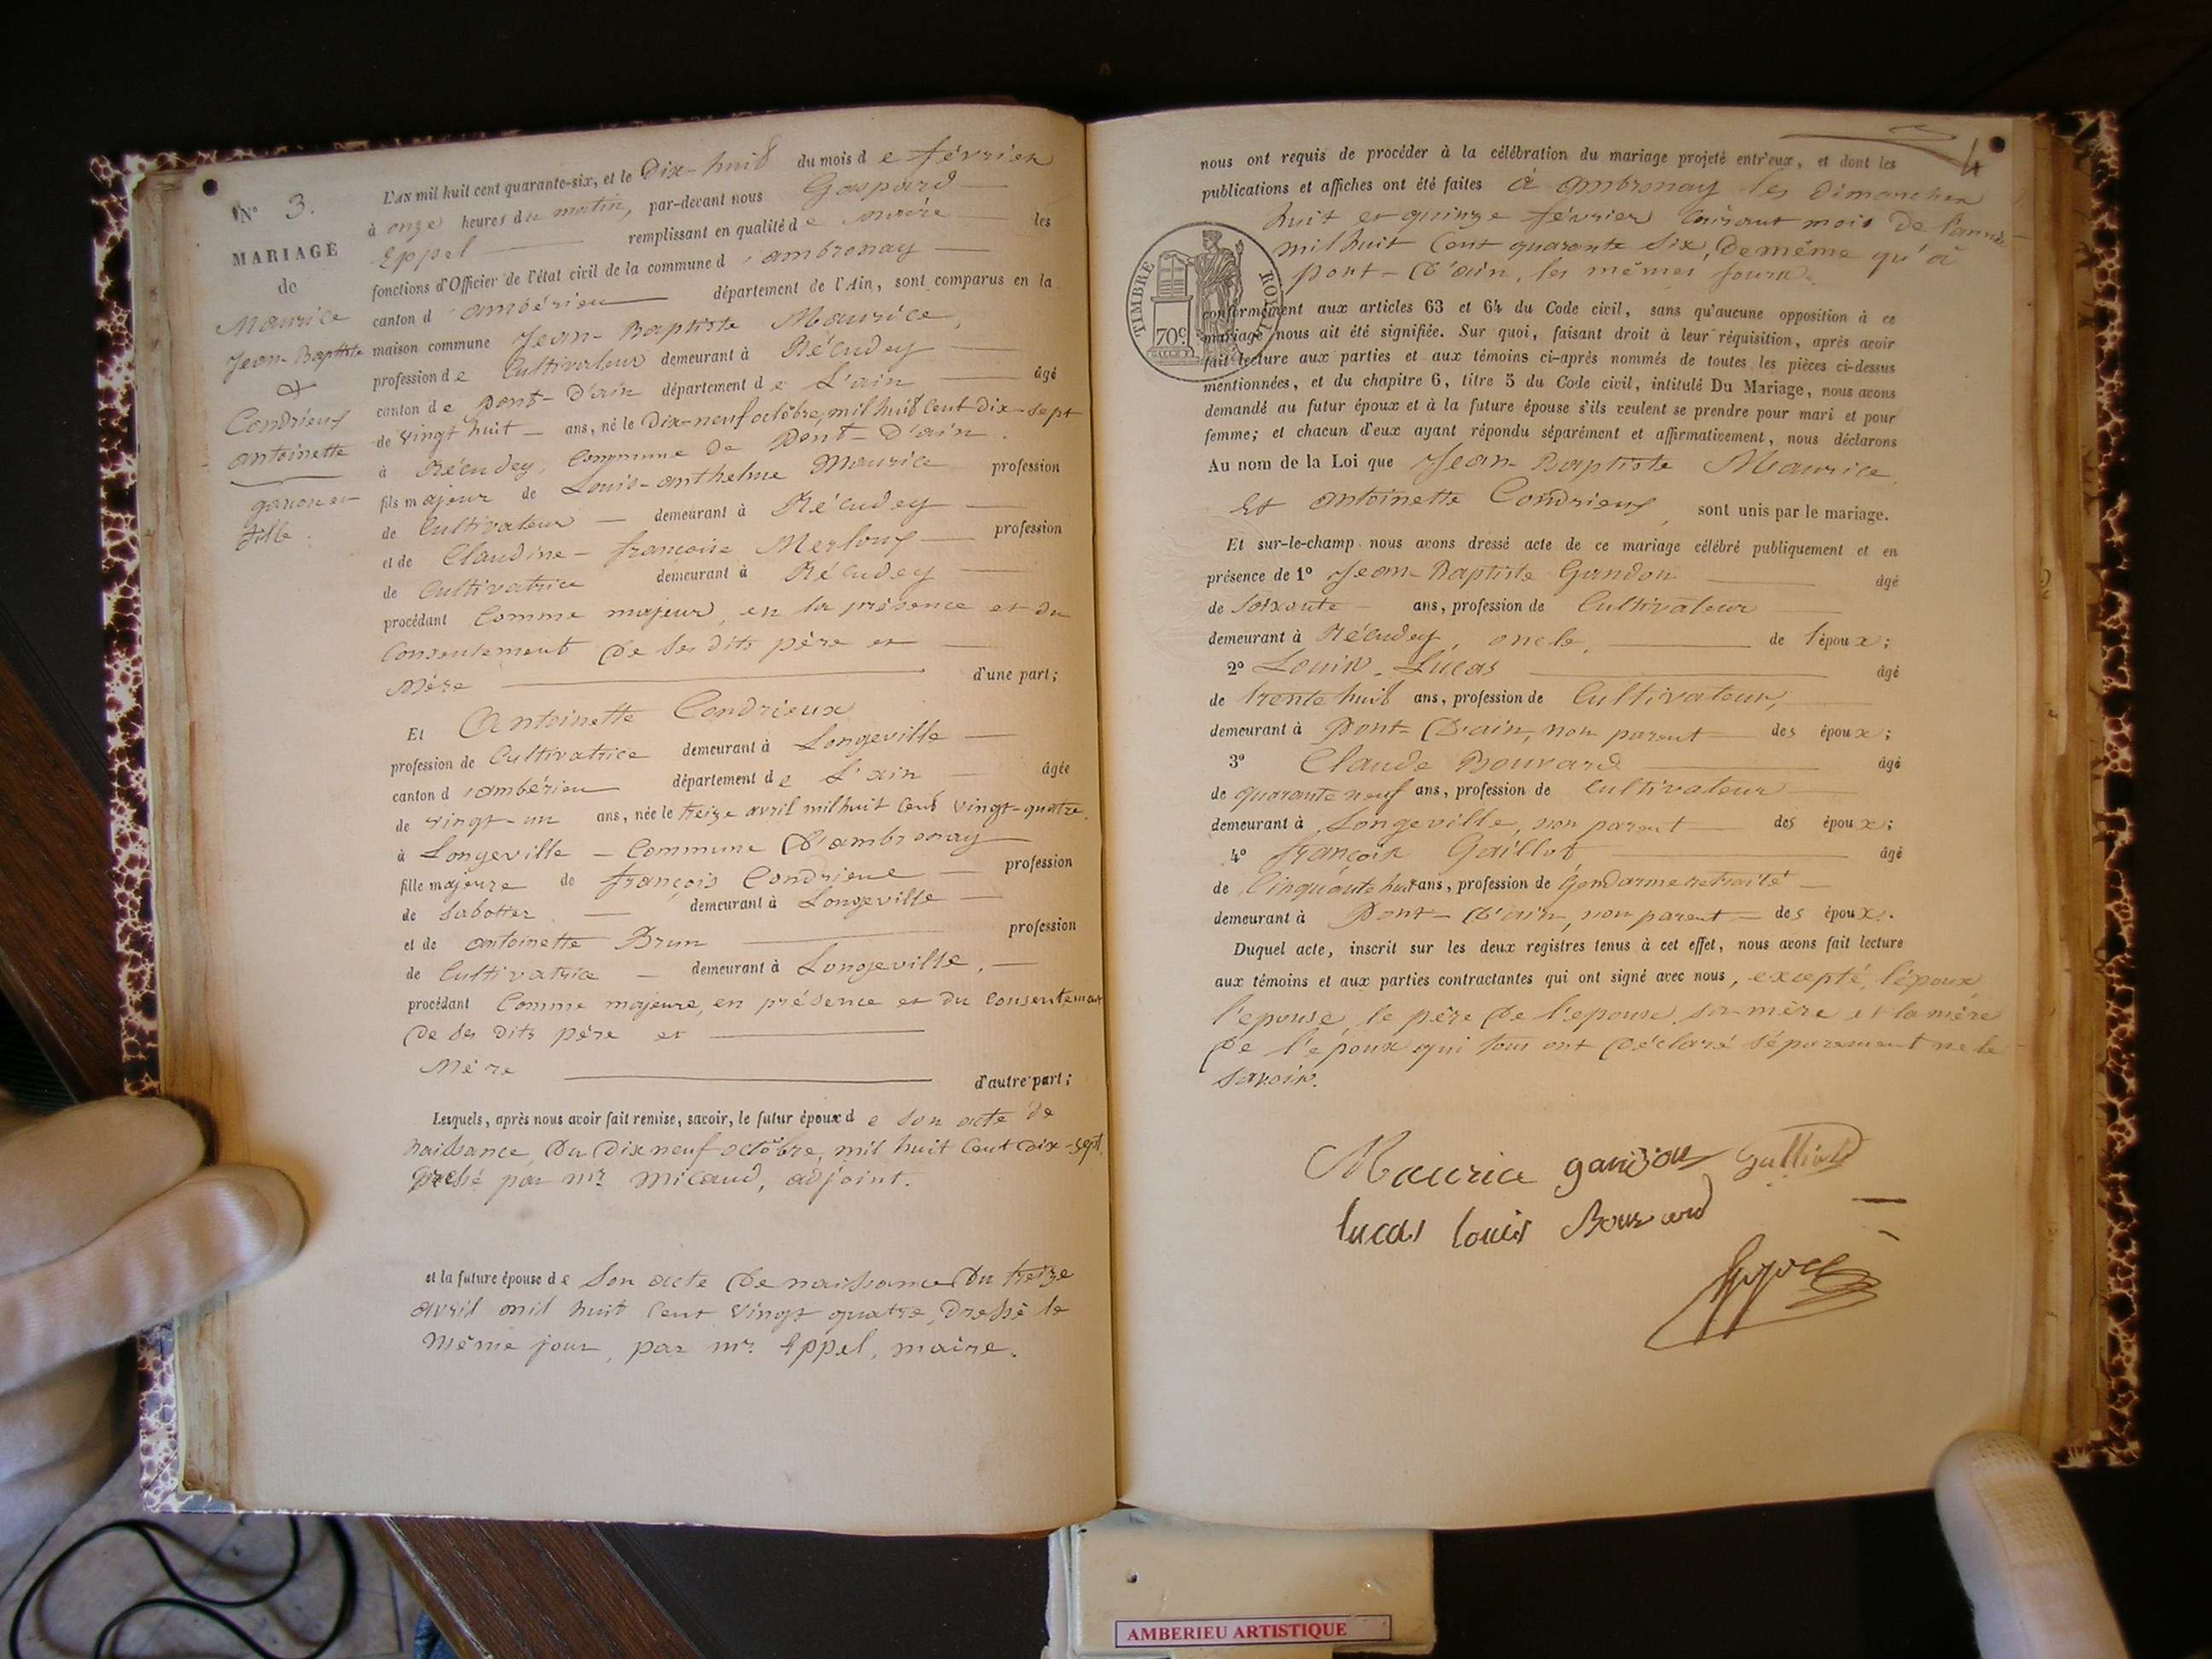 N° 3.
MARIAGE
de
Maurice
Jean-Baptiste
&
Condrieux
antoinette
garçon et
fille.
L'AN mil huit cent quarante-six, et le Dix-huit du mois de février
à onze heures du matin, par-devant nous Gaspard
Eppel remplissant en qualité de maire les
fonctions d'Officier de l'état civil de la commune d'ambronay
canton d'ambérieu département de l'Ain, sont comparus en la
maison commune Jean-Baptiste Maurice,
profession de Cultivateur demeurant à
canton de pont-D'ain département de L'ain âgé
de vingt huit ans, né le Dix-neuf octobre, mil huit Cent dix-sept
à commune de Pont-D'ain.
fils majeur de Louis-anthelme Maurice profession
de Cultivateur demeurant à
et de Claudine-françoise profession
de Cultivatrice demeurant à
procédant Comme majeur, en la présence et du
Consentement de ses dits père et
Mère d'une part;
Et Antoinette Condrieux
profession de Cultivatrice demeurant à Longeville
canton d'ambérieu département de L'ain âgée
de vingt-un ans, née le treize avril mil huit Cent vingt-quatre,
à Longeville - Commune D'ambronay
fille majeure de françois Condrieux profession
de Sabotier demeurant à Longeville
et de antoinette Brun profession
de Cultivatrice demeurant à Longeville,
procédant Comme majeure, en présence et du Consentement
De ses dits père et
Mère d'autre part;
Lesquels, après nous avoir fait remise, savoir, le futur époux de son acte de
naissance, Du Dix neuf octobre, mil huit Cent dix-sept,
Dressé par mr. Micaud, adjoint.
et la future épouse de Son acte De naissance Du treize
avril mil huit Cent vingt quatre, Dressé le
Même jour, par mr. Eppel, maire.
4
nous ont requis de procéder à la célébration du mariage projeté entr'eux, et dont les
publications et affiches ont été faites à ambronay les Dimanches
huit et quinze février Courant mois de l'année
mil huit Cent quarante six, De même qu'à
pont-D'ain, les mêmes jours.
TIMBRE ROYAL
70c
conformément aux articles 63 et 64 du Code civil, sans qu'aucune opposition à ce
mariage nous ait été signifiée. Sur quoi, faisant droit à leur réquisition, après avoir
fait lecture aux parties et aux témoins ci-après nommés de toutes les pièces ci-dessus
mentionnées, et du chapitre 6, titre 5 du Code civil, intitulé Du Mariage, nous avons
demandé au futur époux et à la future épouse s'ils veulent se prendre pour mari et pour
femme; et chacun d'eux ayant répondu séparément et affirmativement, nous déclarons
Au nom de la Loi que Jean-Baptiste Maurice
Et antoinette Condrieux, sont unis par le mariage.
Et sur-le-champ nous avons dressé acte de ce mariage célébré publiquement et en
présence de 1° Jean-Baptiste âgé
de Soixante ans, profession de Cultivateur
demeurant à oncle, de l'époux;
2° Louis Lucas âgé
de trente huit ans, profession de Cultivateur,
demeurant à Pont-D'ain, non parent des époux;
3° Claude Bouvard âgé
de quarante neuf ans, profession de Cultivateur
demeurant à Longeville, non parent des époux;
4° françois Gaillot âgé
de Cinquante huit ans, profession de Gendarme retraité
demeurant à Pont-D'ain, non parent des époux.
Duquel acte, inscrit sur les deux registres tenus à cet effet, nous avons fait lecture
aux témoins et aux parties contractantes qui ont signé avec nous, excepté, l'époux,
l'epouse, le père De l'epouse, sa mère et la mère
De l'epoux qui tous ont Déclaré séparement ne le
savoir.
Maurice
lucas louis Bouvard
Eppel
AMBERIEU ARTISTIQUE